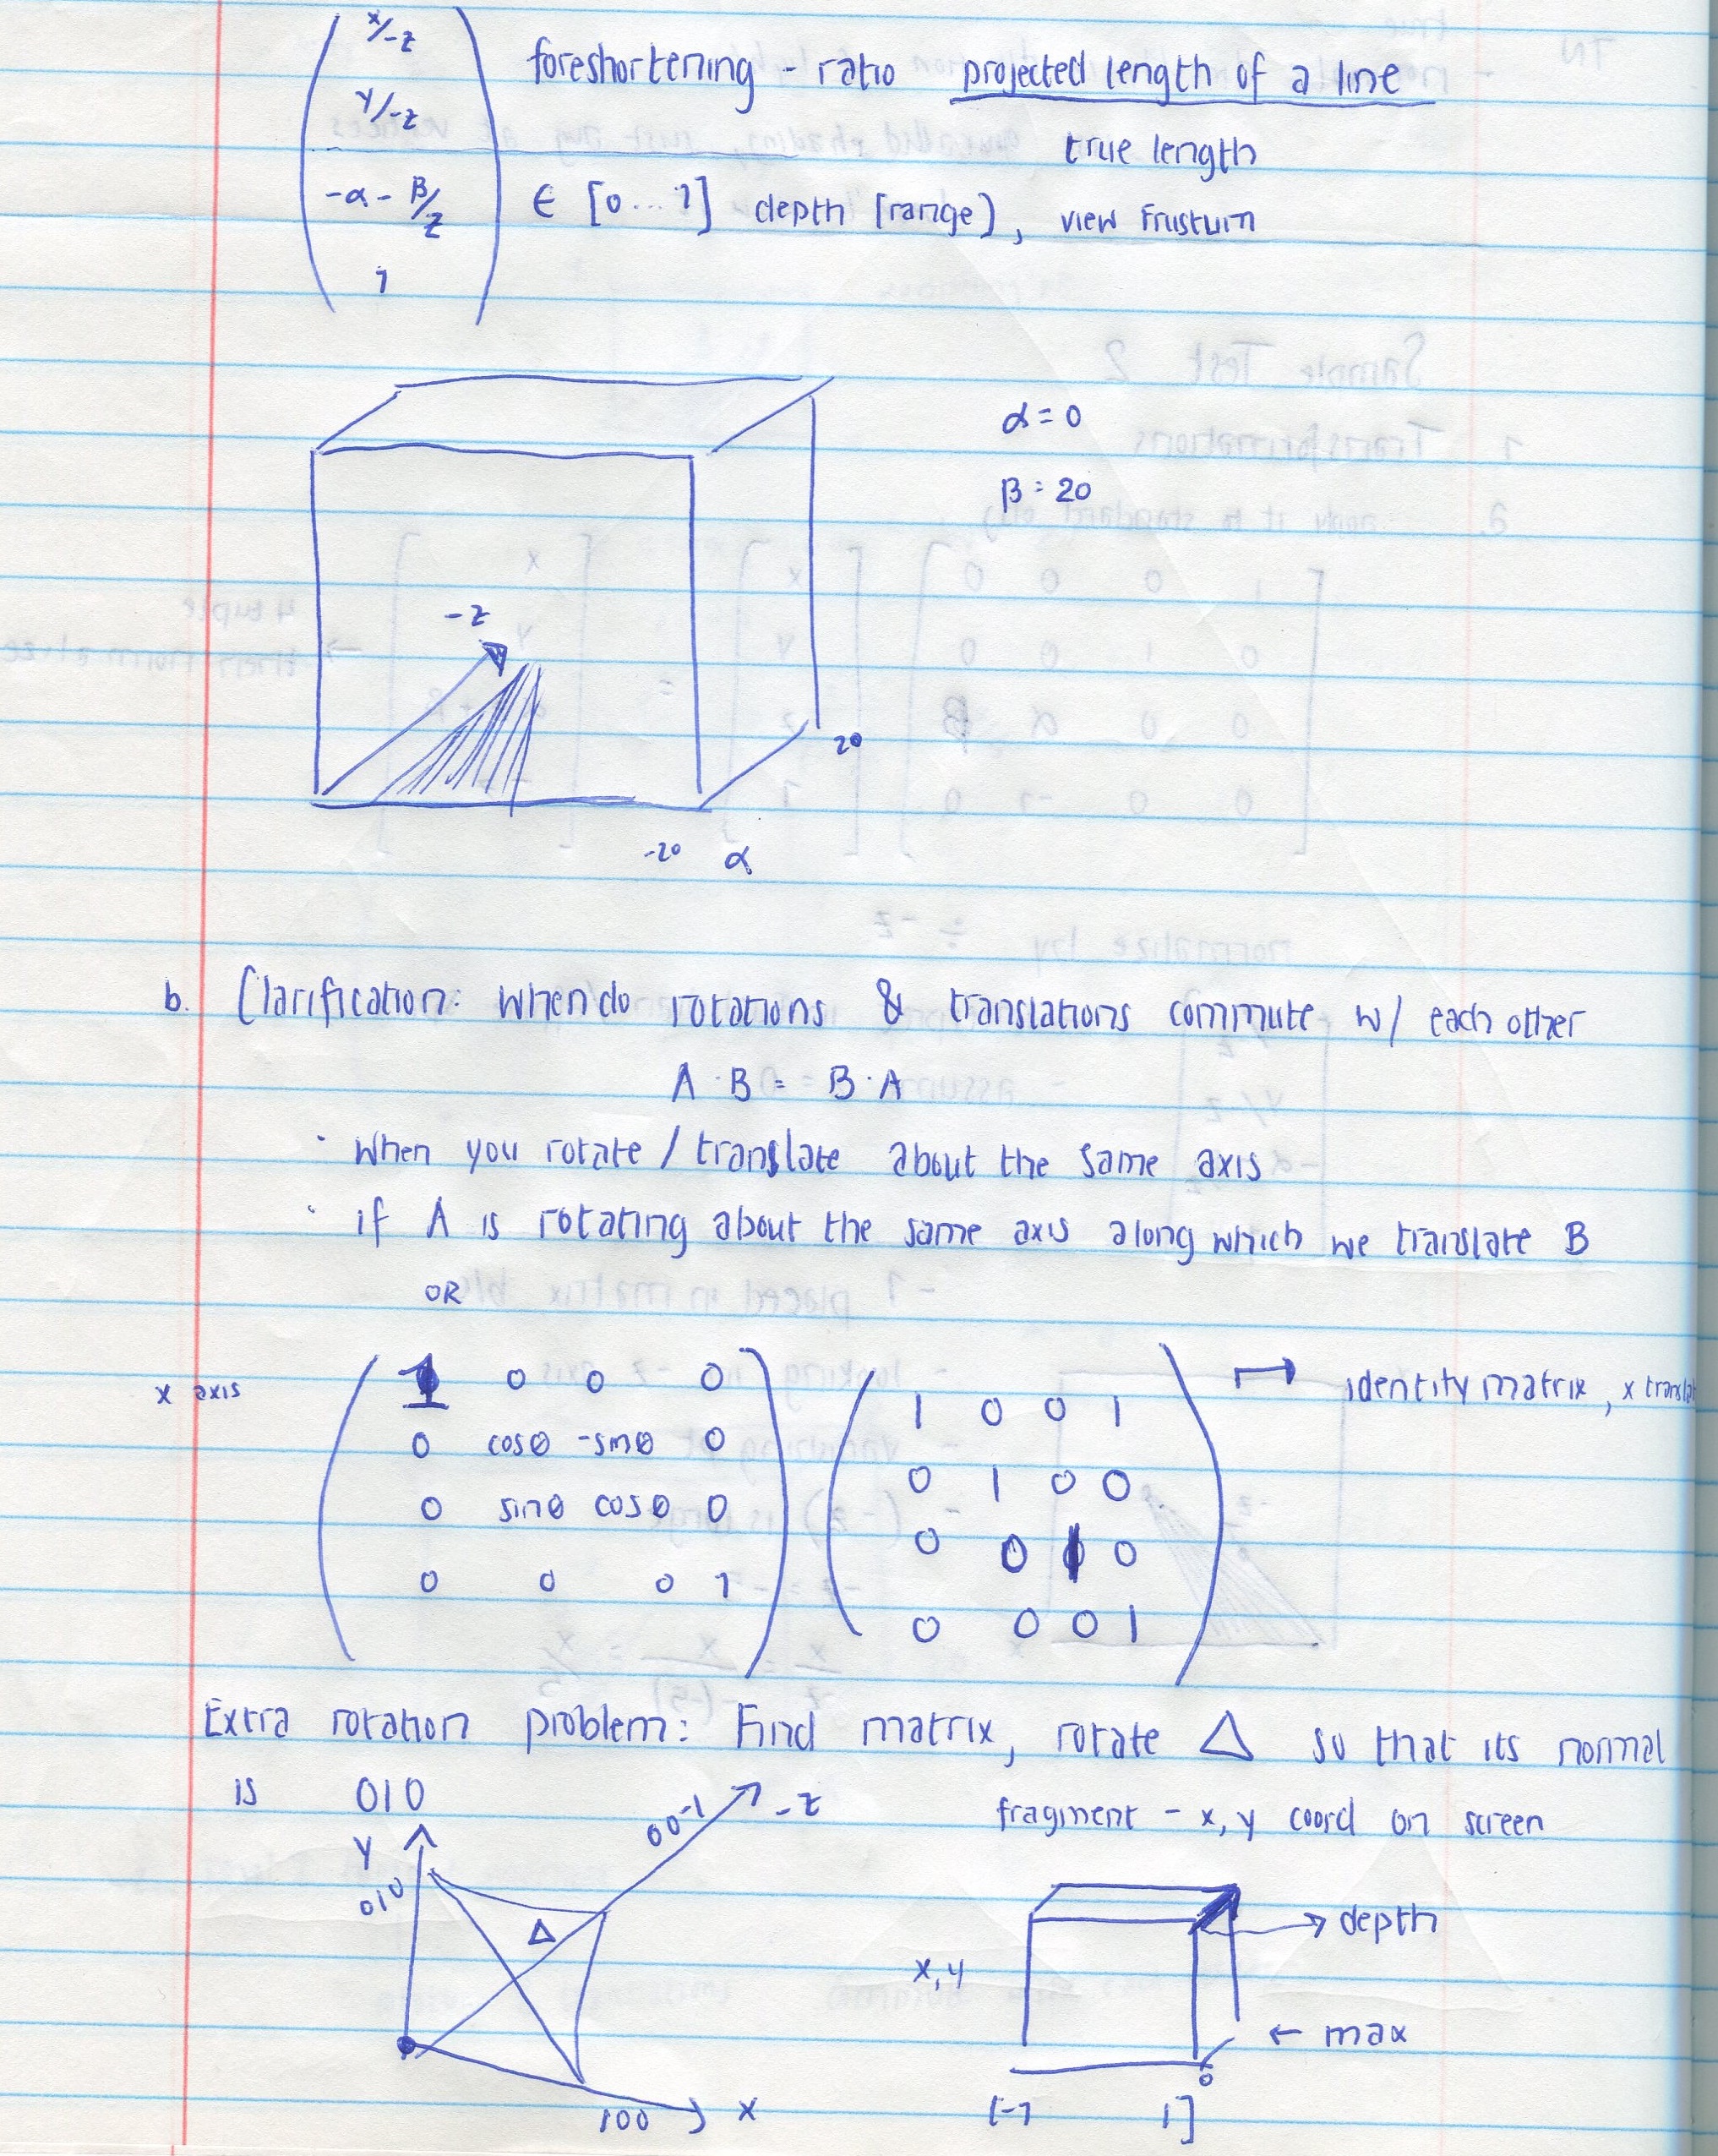 x/-z
y/-z
-α - β/z
1
foreshortening - ratio projected length of a line
true length
∈ [0...1] depth [range), view frustum
α = 0
β = 20
-z
20
-20 α
b. Clarification: when do rotations & translations commute w/ each other
A · B = B · A
· when you rotate / translate about the same axis
· if A is rotating about the same axis along which we translate B
OR
x axis
1 0 0 0
0 cosθ -sinθ 0
0 sinθ cosθ 0
0 0 0 1
1 0 0 1
0 1 0 0
0 0 1 0
0 0 0 1
identity matrix, x transla
Extra rotation problem: Find matrix, rotate △ so that its normal
is 010
fragment - x, y coord on screen
Y
010
00-1
-z
△
100
x
x, y
→ depth
← max
0
[-1 1]